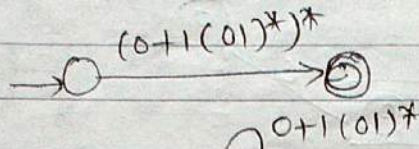 (0+1(01)*)*
0+1(01)*